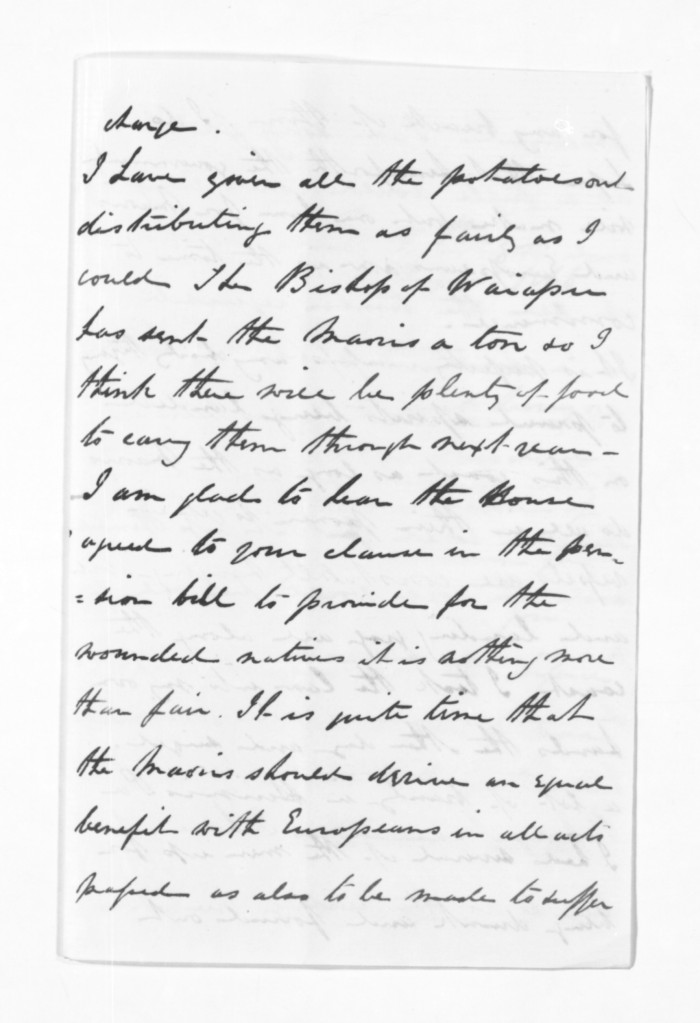 charge.
I have given all the potatoes out
distributing them as fairly as I
could The Bishop of Waiapu
has sent the Maoris a ton so I
think there will be plenty of food
to carry them through next year -
I am glad to hear the House
agreed to your clause in the pen-
=sion bill to provide for the
wounded natives it is nothing more
than fair. It is quite time that
the Maoris should derive an equal
benefit with Europeans in all acts
passed as also to be made to suffer